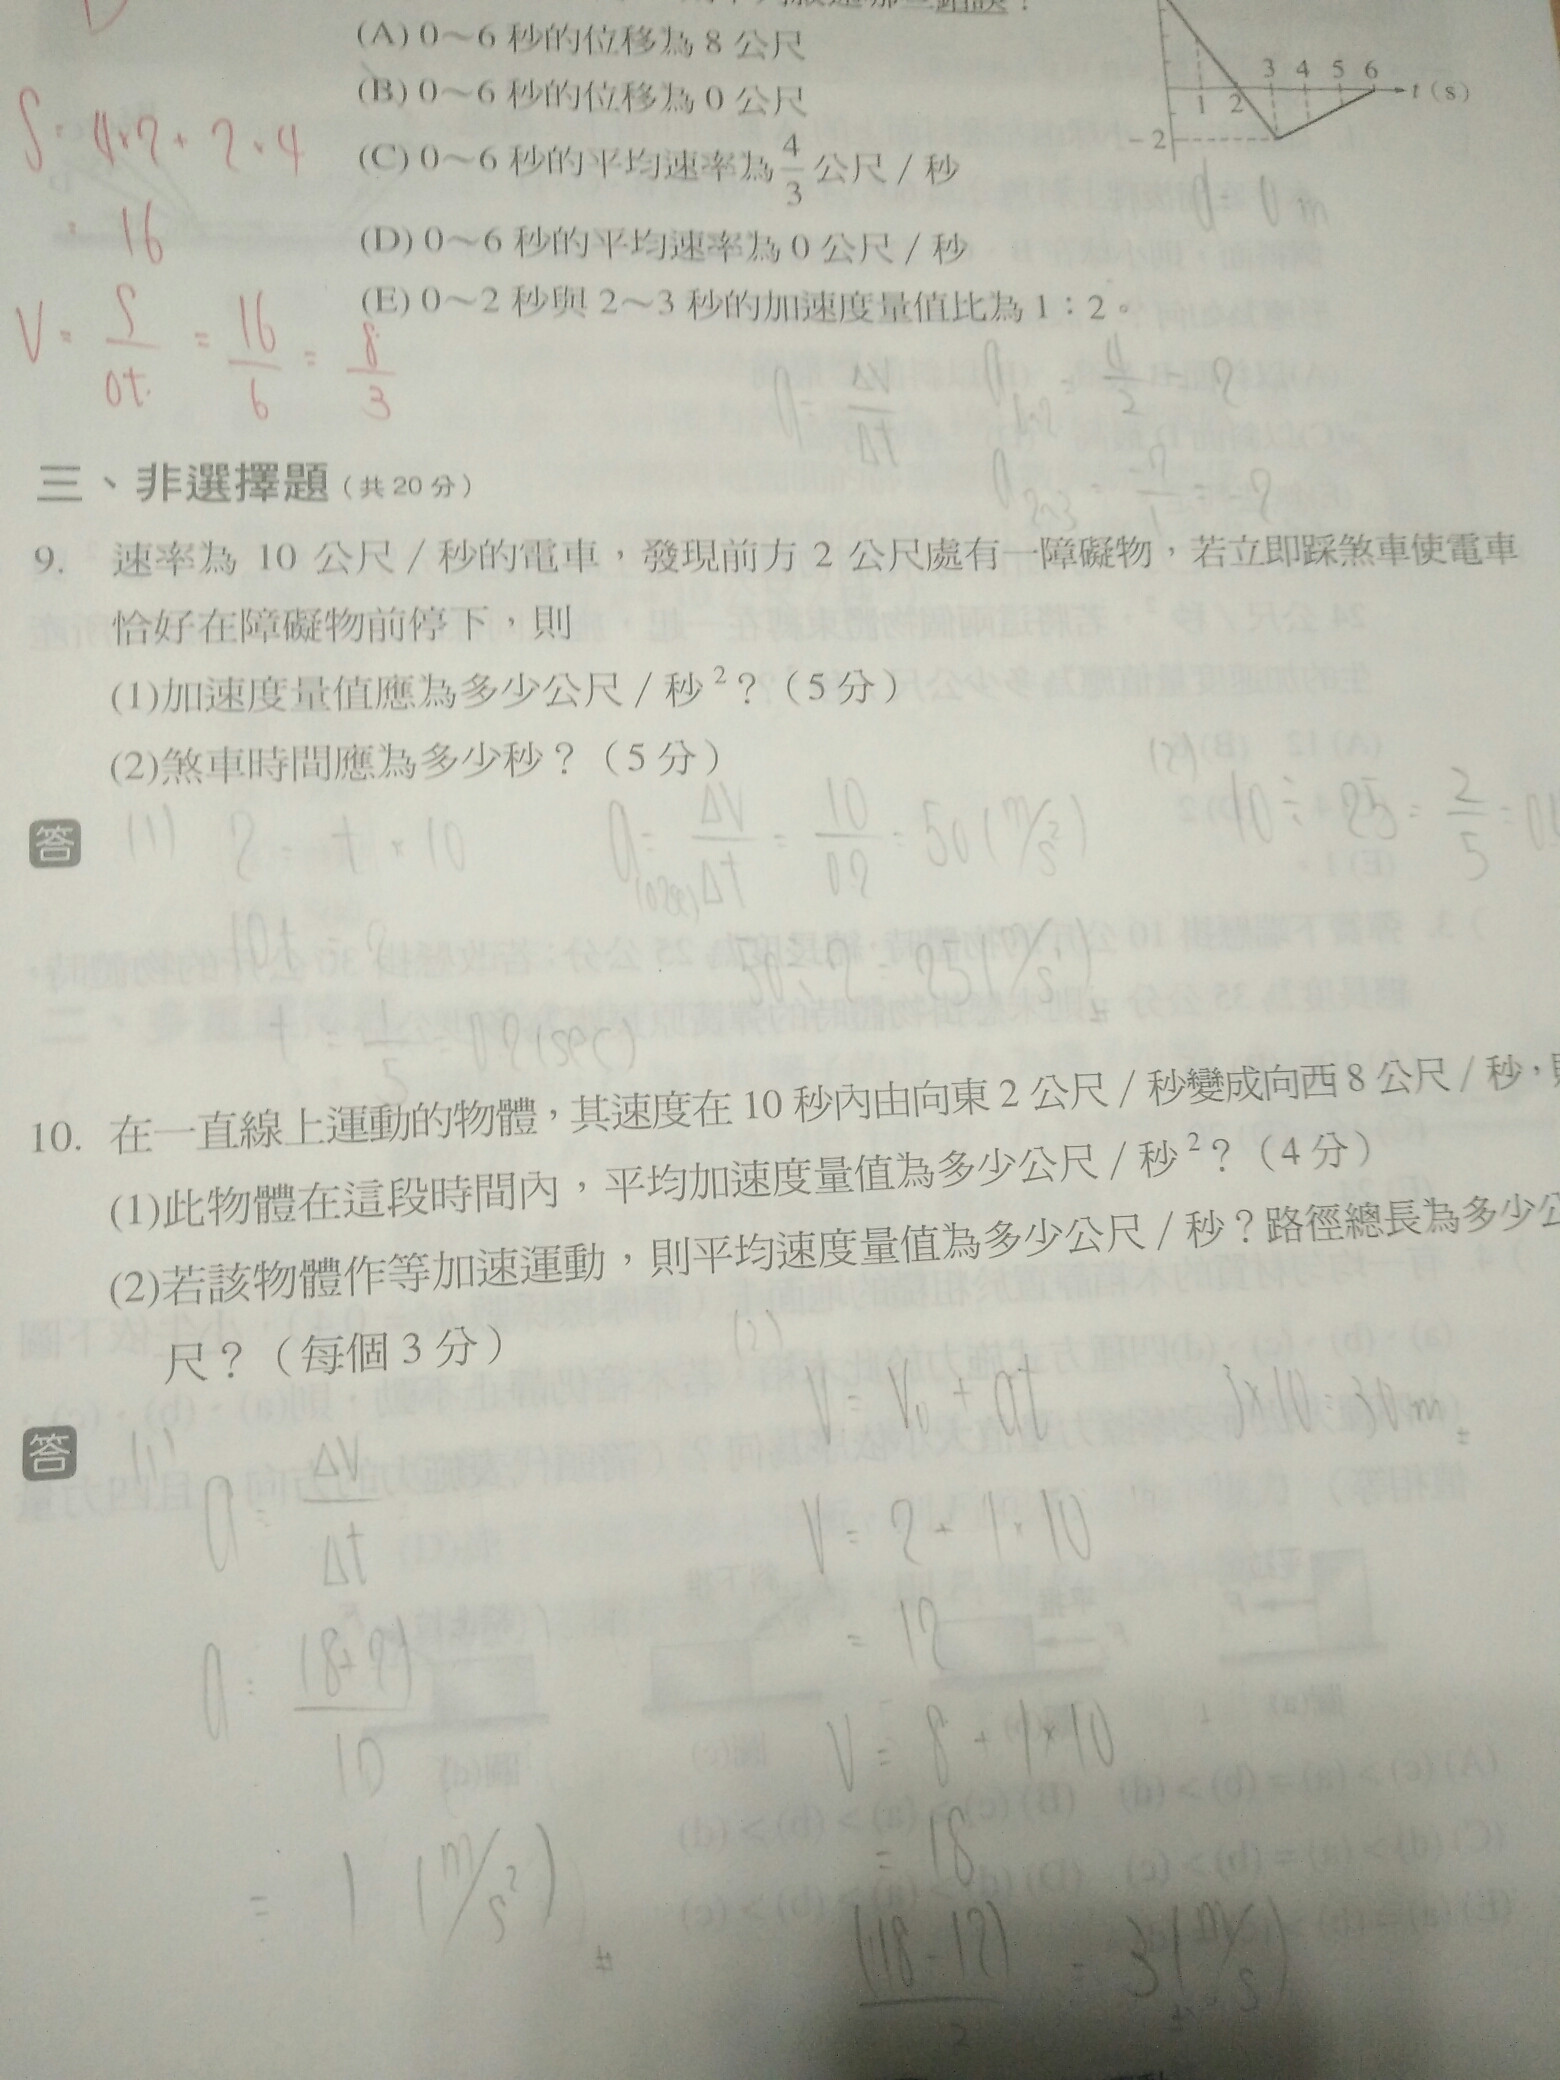 (A) 0～6 秒的位移為 8 公尺
(B) 0～6 秒的位移為 0 公尺
(C) 0～6 秒的平均速率為 4/3 公尺／秒
(D) 0～6 秒的平均速率為 0 公尺／秒
(E) 0～2 秒與 2～3 秒的加速度量值比為 1：2。
1 2 3 4 5 6 t (s)
-2
d = 0 m
S = 4×2 + 2×4
= 16
V = S/Δt = 16/6 = 8/3
a = ΔV/Δt
= 4/2 = 2
a 2~3 = -2/1 = -2
三、非選擇題（共 20 分）
9. 速率為 10 公尺／秒的電車，發現前方 2 公尺處有一障礙物，若立即踩煞車使電車
恰好在障礙物前停下，則
(1)加速度量值應為多少公尺／秒²？（5 分）
(2)煞車時間應為多少秒？（5 分）
答
(1) 2 = t × 10
10t = 2
t = 1/5 = 0.2 (sec)
a = ΔV/Δt = 10/0.2 = 50 (m/s²)
50 ÷ 2 = 25 (m/s²)
(2)
10 ÷ 25 = 2/5 =
10. 在一直線上運動的物體，其速度在 10 秒內由向東 2 公尺／秒變成向西 8 公尺／秒，
(1)此物體在這段時間內，平均加速度量值為多少公尺／秒²？（4 分）
(2)若該物體作等加速運動，則平均速度量值為多少公尺／秒？路徑總長為多少公
尺？（每個 3 分）
答
(1)
a = ΔV/Δt
a = (8+2)/10
= 1 (m/s²)#
(2)
V = V₀ + at
V = 2 + 1×10
= 12
V = 8 + 1×10
= 18
(18-12)/2 = 3 (m/s)
3×10 = 30 m